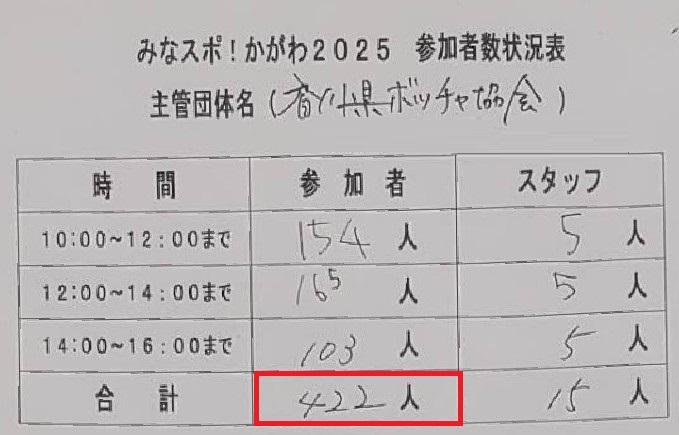 みなスポ！かがわ２０２５　参加者数状況表
主管団体名（香川県ボッチャ協会）
時　間　参加者　スタッフ
10:00～12:00まで　154人　5人
12:00～14:00まで　165人　5人
14:00～16:00まで　103人　5人
合　計　422人　15人